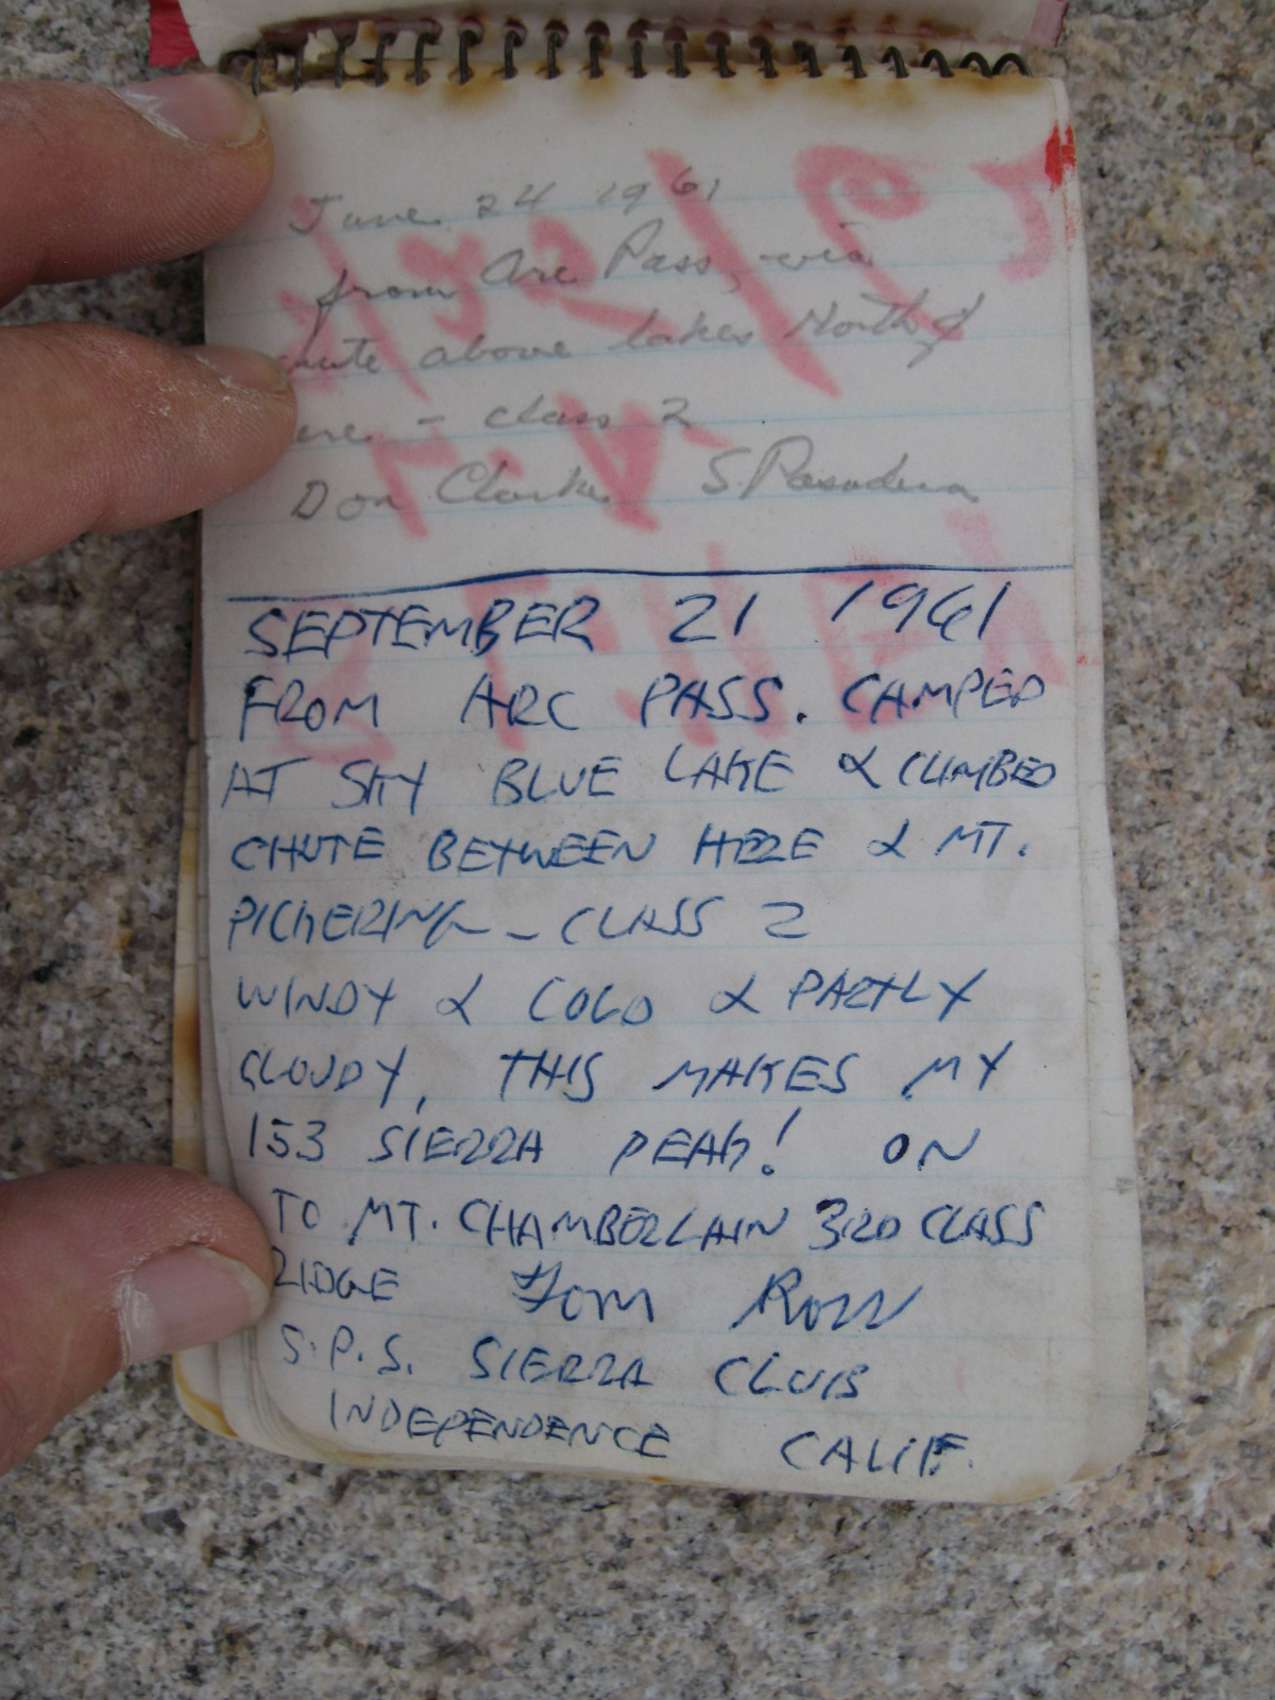 June 24 1961
from Arc Pass, via
chute above lakes North of
here - class 2
Don Clarke S. Pasadena
SEPTEMBER 21 1961
FROM ARC PASS. CAMPED
AT SKY BLUE LAKE & CLIMBED
CHUTE BETWEEN HERE & MT.
PICKERING - CLASS 2
WINDY & COLD & PARTLY
CLOUDY, THIS MAKES MY
153 SIERRA PEAK! ON
TO MT. CHAMBERLAIN 3RD CLASS
RIDGE Tom Ross
S.P.S. SIERRA CLUB
INDEPENDENCE CALIF.